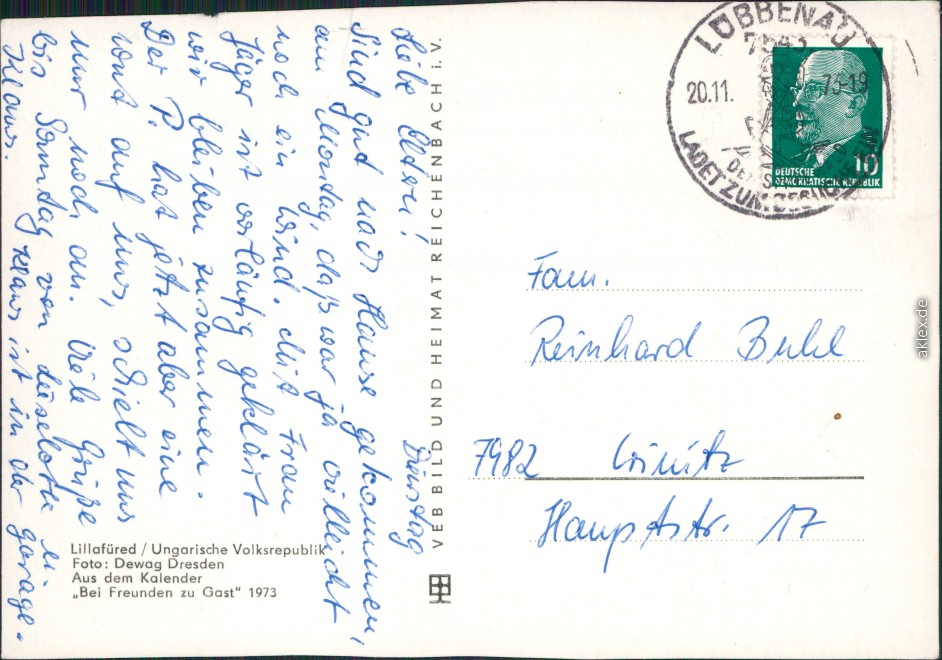 Dienstag
Liebe Eltern!
Sind gut nach Hause gekommen,
am Montag, daß war ja vielleicht
noch ein Wind. Mit Frau
Jäger ist vorläufig geklärt
wir bleiben zusammen.
Der P. hat jetzt aber eine
Wont auf uns, schielt uns
nur noch an. Viele Grüße
bis Samtag von Liselotte u.
Klaus. Klaus ist in der garage.
VEB BILD UND HEIMAT REICHENBACH i. V.
Lillafüred / Ungarische Volksrepublik
Foto: Dewag Dresden
Aus dem Kalender
„Bei Freunden zu Gast" 1973
LÜBBENAU
7543
20.11. 73-19
LADET ZUM
10
DEUTSCHE
DEMOKRATISCHE REPUBLIK
Fam.
Reinhard Buhl
7982 Crinitz
Hauptstr. 17
aklex.de